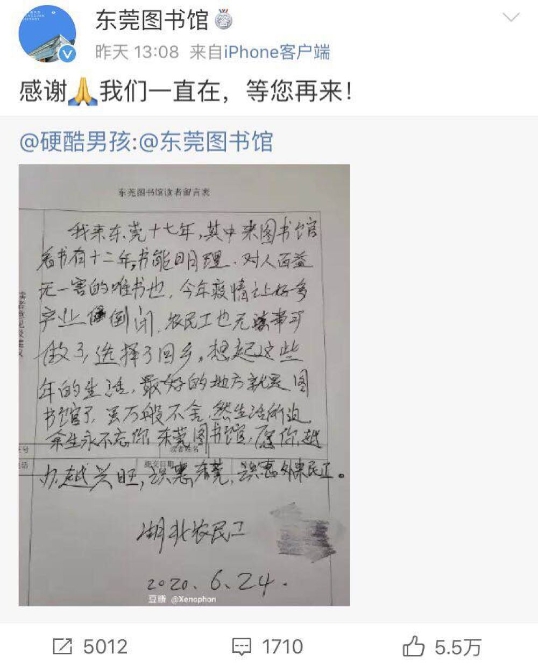 东莞图书馆
昨天 13:08 来自iPhone客户端
感谢🙏我们一直在，等您再来！
@硬酷男孩:@东莞图书馆
东莞图书馆读者留言表
我来东莞十七年，其中来图书馆
看书有十二年，书能明理，对人百益
无一害的唯书也，今年疫情让好多
产业倒闭，农民工也无事可
做了，选择了回乡，想起这些
年的生活，最好的地方就是图
书馆了，虽万般不舍，然生活所迫
余生永不忘你，东莞图书馆，愿你越
办越兴旺，识惠东莞，识惠外来民工。
湖北农民工
2020.6.24.
豆瓣 @Xenophon
5012
1710
5.5万